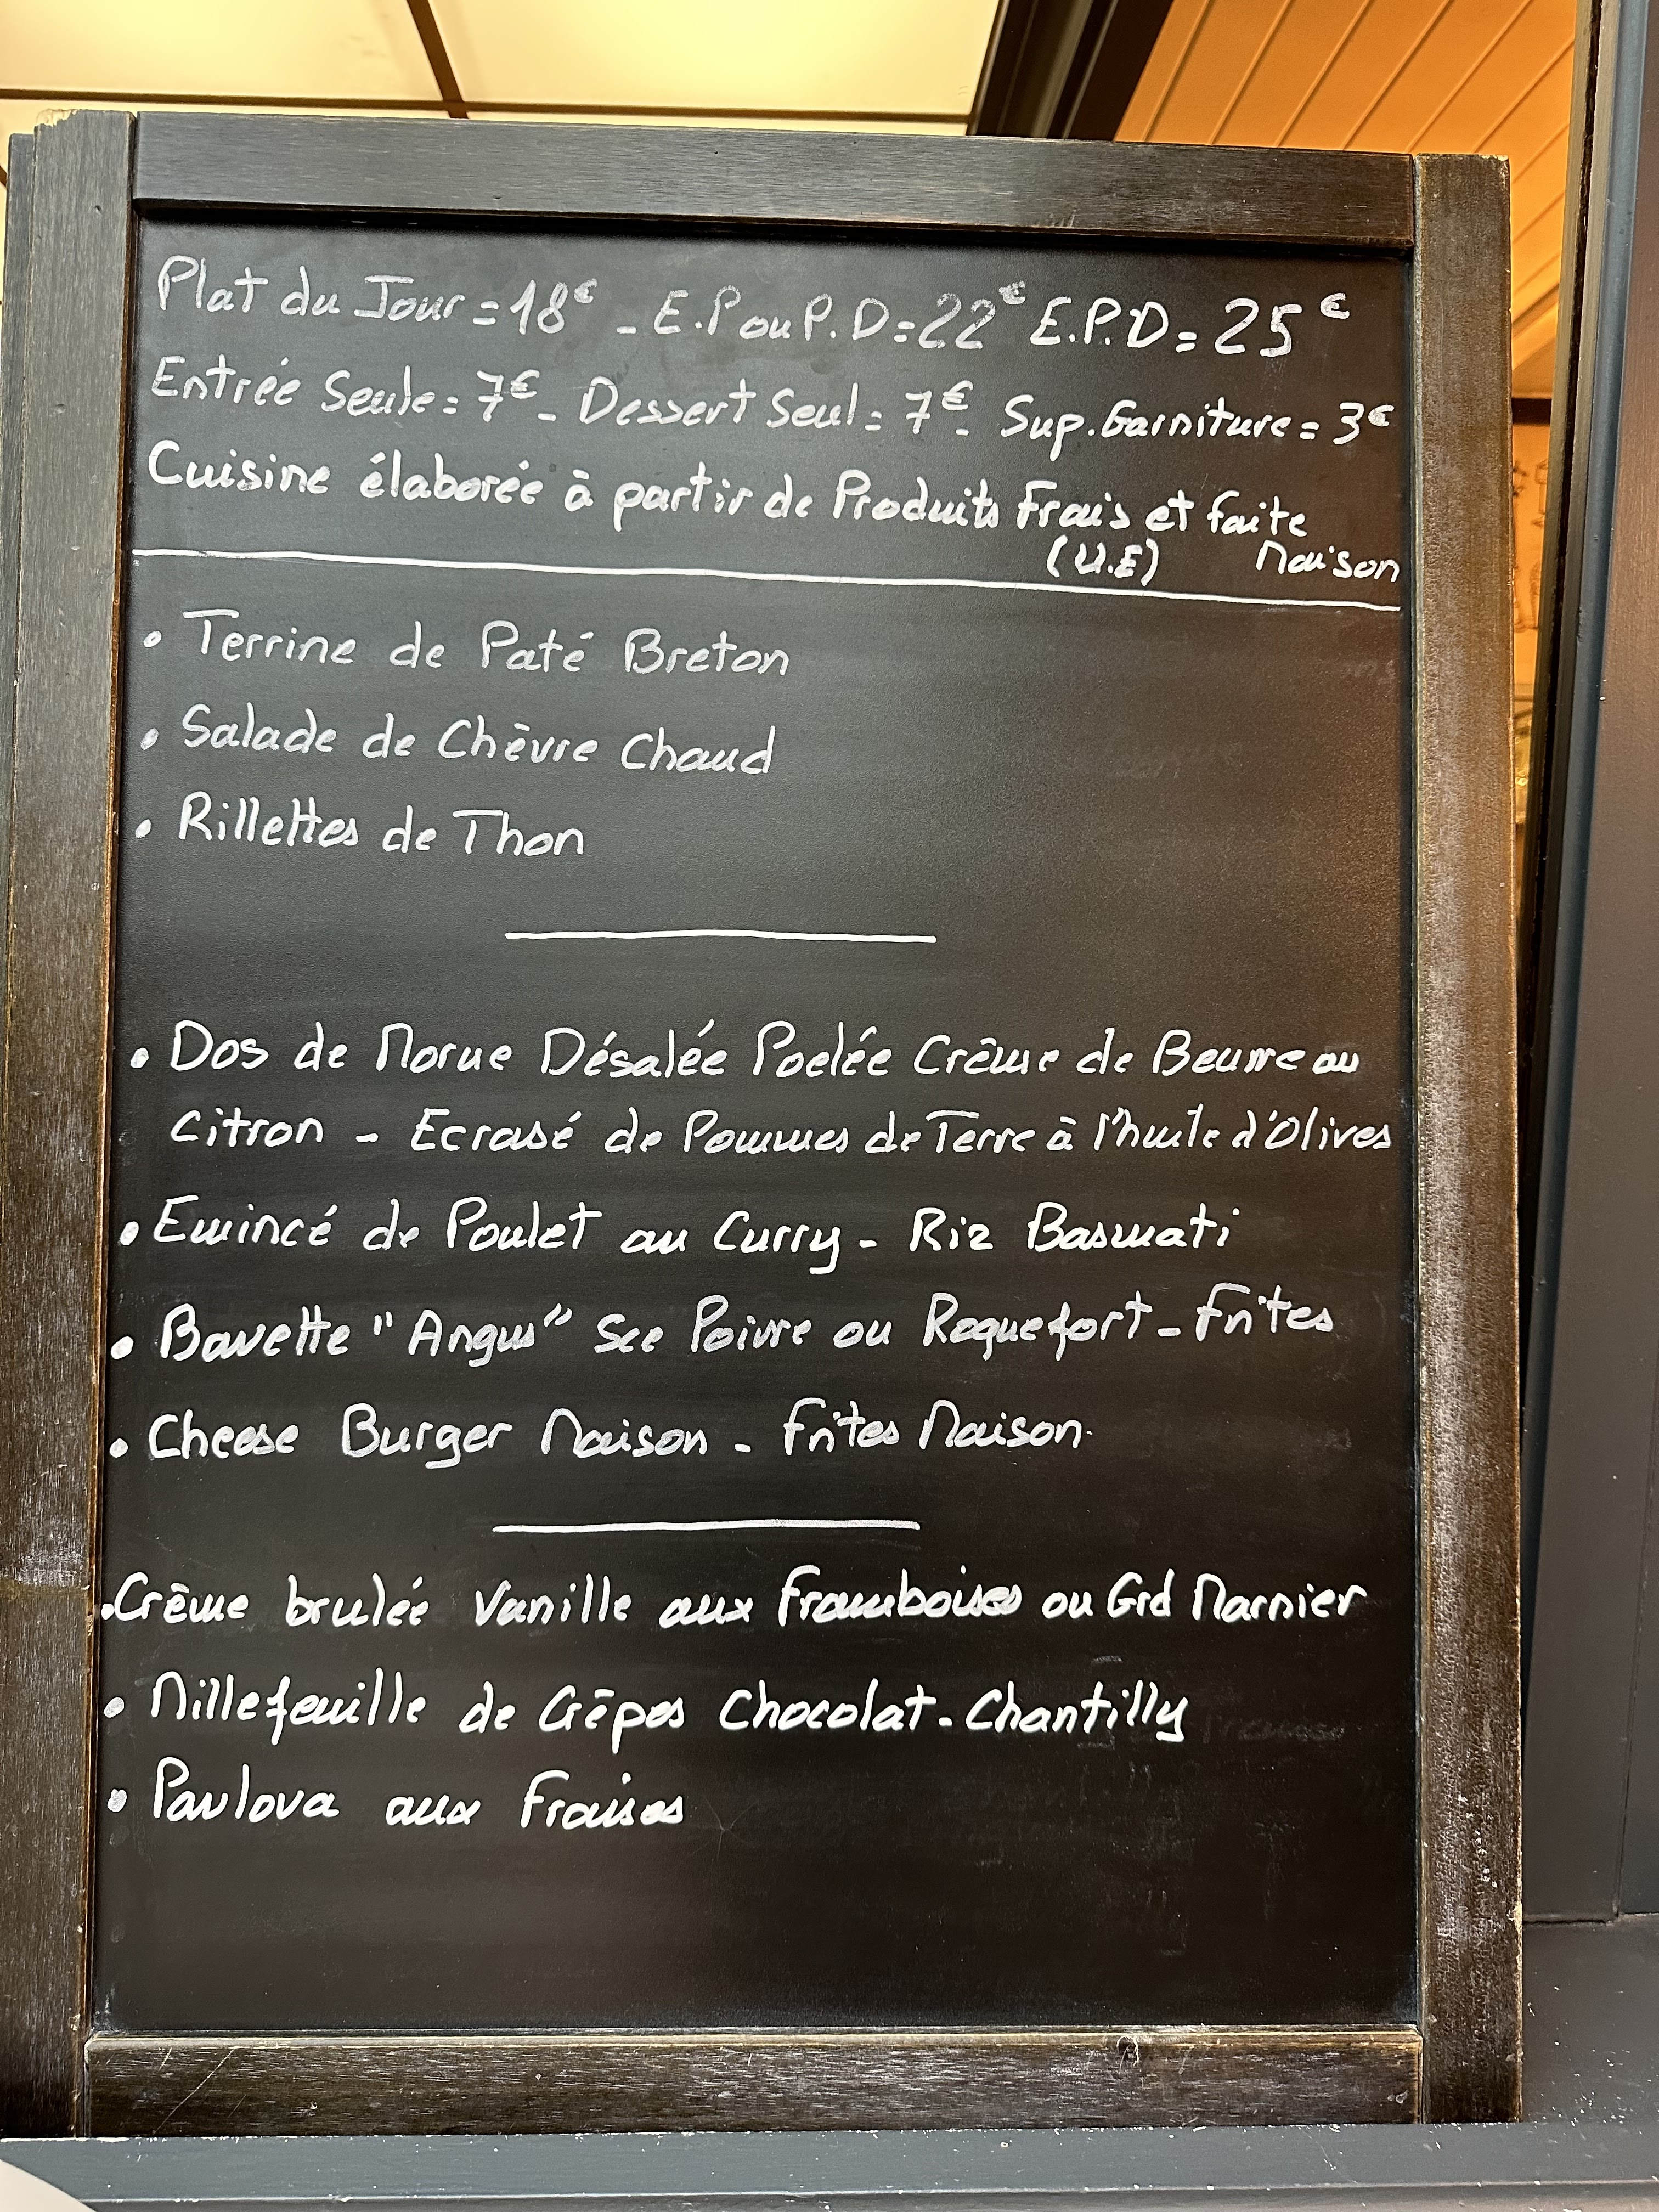 Plat du Jour = 18€ - E.P ou P.D = 22€ E.P.D = 25€
Entrée Seule = 7€ - Dessert Seul = 7€ - Sup. Garniture = 3€
Cuisine élaborée à partir de Produits Frais et faite
(U.E) Maison
• Terrine de Paté Breton
• Salade de Chèvre Chaud
• Rillettes de Thon
• Dos de Morue Désalée Poelée Crème de Beurre au
Citron - Ecrasé de Pommes de Terre à l'huile d'Olives
• Emincé de Poulet au Curry - Riz Basmati
• Bavette "Angus" Sce Poivre ou Roquefort - Frites
• Cheese Burger Maison - Frites Maison.
• Crème brulée Vanille aux Framboises ou Grd Marnier
• Millefeuille de Crêpes Chocolat - Chantilly
• Pavlova aux Fraises